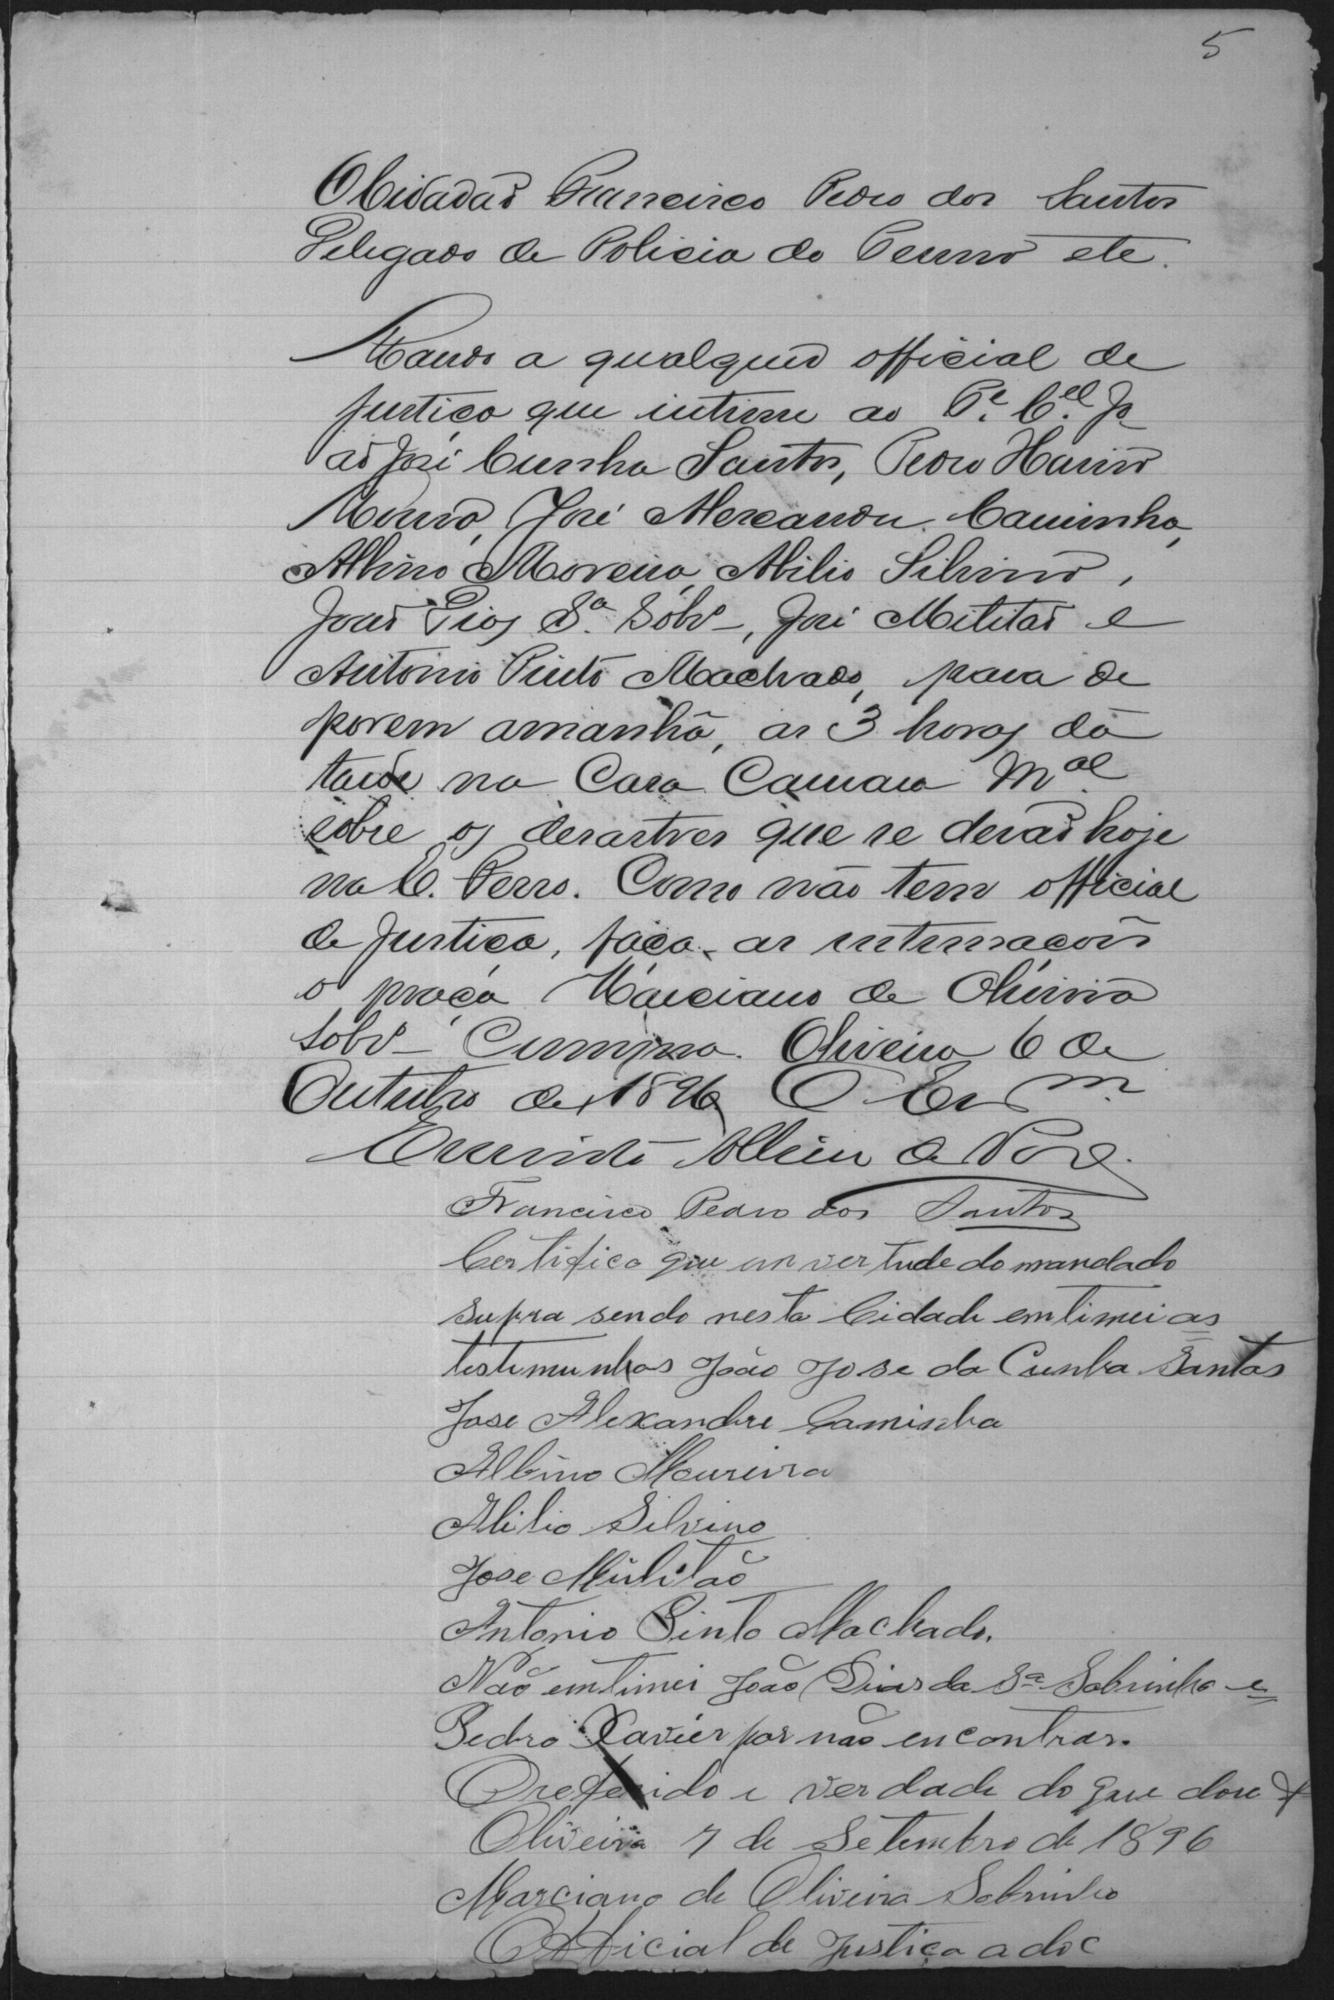 5
O Cidadão Francisco Pedro dos Santos
Delegado de Policia do Termo etc.
Mando a qualquer official de
justiça que intime ao Te. Cel. Jo
ão José Cunha Santos, Pedro
José Alexandre Caminha,
Albino Moreira, Abilio Silvino,
João Dias Sa. Sobro, José Militão e
Antonio Pinto Machado, para de
porem amanhã, as 3 horas da
tarde na Casa Camara Mal
sobre os desastres que se derão hoje
na E. Ferro. Como não tem official
de justiça, faça as intimações
o praça Marciano de Oliveira
Sobro Cumpra. Oliveira 6 de
Outubro de 1896 O Escm
Francisco Pedro dos Santos
Certifico que em vertude do mandado
supra sendo nesta Cidade emtimei as
testimunhas João Jose da Cunha Santos
Jose Alexandre Caminha
Albino Moureira
Abilio Silvino
Jose Militão
Antonio Pinto Machado.
Não emtimei João Dias da Sa Sobrinho e
Pedro Xavier por não encontrar.
O referido e verdade do que dou f
Oliveira 7 de Setembro de 1896
Marciano de Oliveira Sobrinho
Official de Justiça adoc